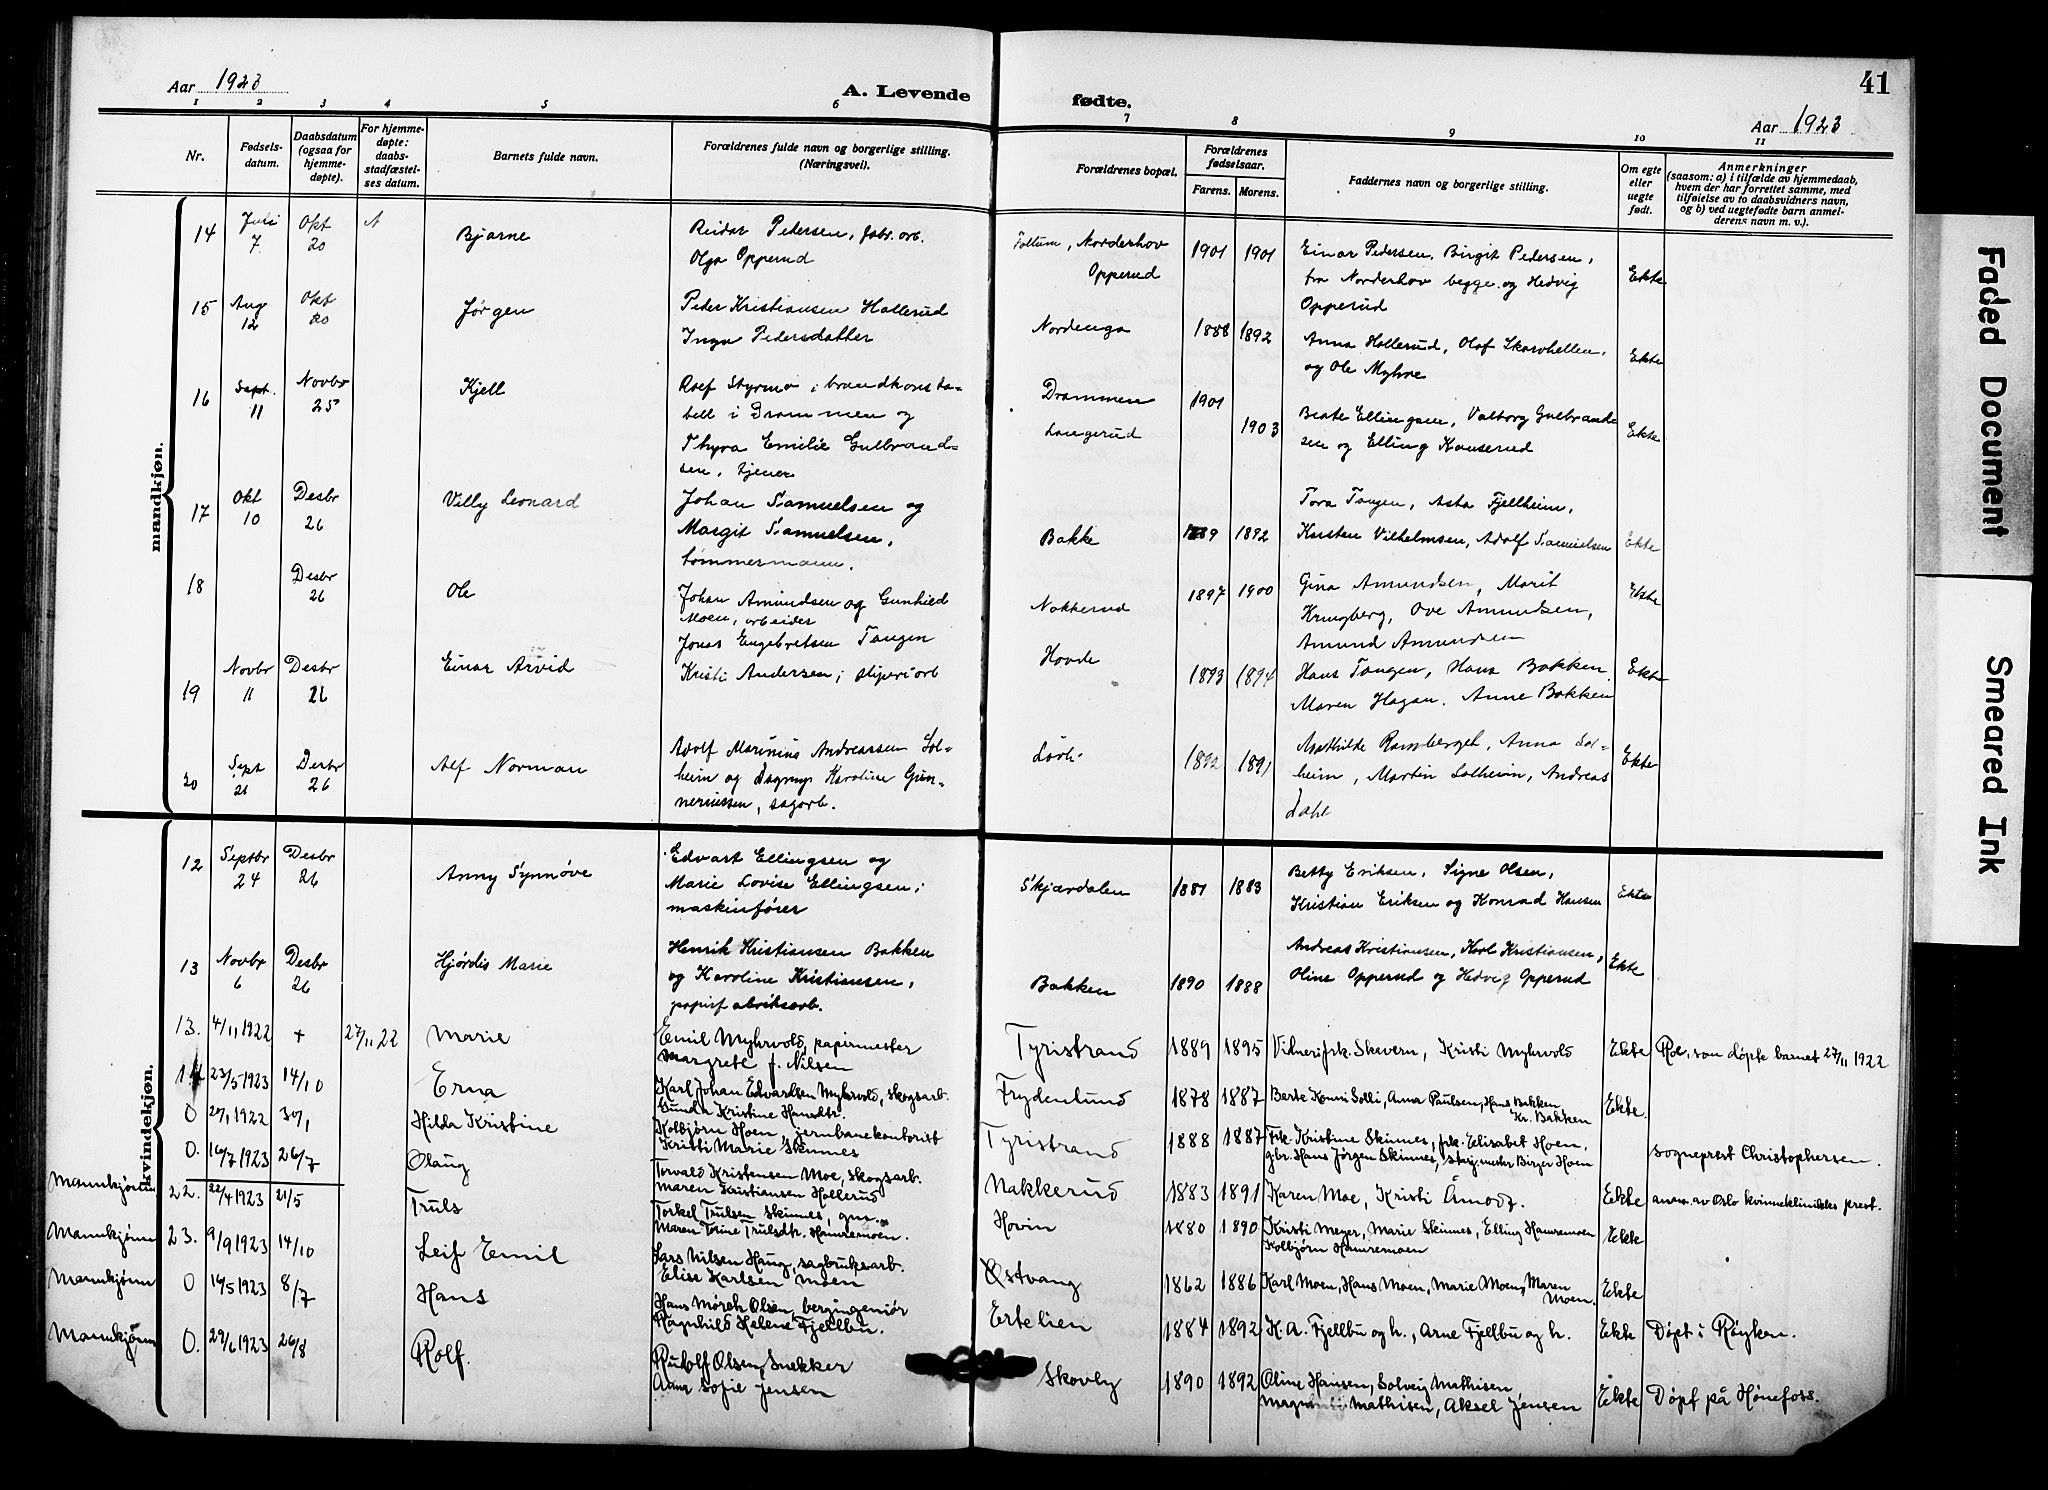 41
Aar 1923
A. Levende
fødte.
Aar 1923
1 2 3 4 5 6 7 8 9 10 11
Nr.
Fødsels-
datum.
Daabsdatum
(ogsaa for
hjemme-
døpte).
For hjemme-
døpte:
daabs-
stadfæstel-
ses datum.
Barnets fulde navn.
Forældrenes fulde navn og borgerlige stilling.
(Næringsvei).
Forældrenes bopæl.
Forældrenes
fødselsaar.
Farens. Morens.
Faddernes navn og borgerlige stilling.
Om egte
eller
uegte
født.
Anmerkninger
(saasom: a) i tilfælde av hjemmedaab,
hvem der har forrettet samme, med
tilføielse av to daabsvidners navn,
og b) ved uegtefødte barn anmel-
derens navn m. v.).
mandkjøn.
14 Juli 7 Okt 20 Bjarne
Reidar Pedersen, fabr. arb.
Olga Opperud
Norderhov
Opperud
1901 1901
Einar Pedersen, Birgit Pedersen,
fra Norderhov begge og Hedvig
Opperud
Ekte
15 Aug 12 Okt 20 Jørgen
Peder Kristiansen Hollerud
Inga Pedersdatter
Nordenga
1888 1892
Anna Hollerud, Olaf Skarvhellen,
og Ole Myhre
Ekte
16 Sept. 11 Novbr 25 Kjell
Rolf Styrmo, brandkonsta-
bell i Drammen og
Thyra Emilie Gulbrand-
sen, tjener
Drammen
Langerud
1901 1903
Beate Ellingsen, Valborg Gulbrand-
sen og Elling Kauserud
Ekte
17 Okt 10 Desbr 26 Villy Leonard
Johan Samuelsen og
Margit Samuelsen,
tømmermann.
Bakke
1889 1892
Tora Tangen, Asta Fjellheim,
Kristen Vilhelmsen, Adolf Samuelsen
Ekte
18 Desbr 26 Ole
Johan Amundsen og Gunhild
Moen, arbeider
Nakkerud
1897 1900
Gina Amundsen, Marit
Kringberg, Ove Amundsen,
Amund Amundsen
Ekte
19 Novbr 11 Desbr 26 Einar Arvid
Jonas Engebretsen Tangen
Kristi Andersen; sliperiarb
Hovde
1893 1894
Hans Tangen, Hans Bakken
Maren Hagan, Anne Bakken
Ekte
20 Sept 21 Desbr 26 Alf Norman
Adolf Marinius Andreassen Sol-
heim og Dagny Karoline Gun-
neriussen, sagarb.
1892 1891
Mathilde Ramberget, Anna Sol-
heim, Martin Solheim, Andreas
Dahl
Ekte
kvindekjøn.
12 Septbr 24 Desbr 26 Anny Synnøve
Edvart Ellingsen og
Marie Lovise Ellingsen;
maskinfører
Skjærdalen
1881 1883
Betty Eriksen, Signe Olsen,
Kristian Eriksen og Konrad Hansen
Ekte
13 Novbr 6 Desbr 26 Hjørdis Marie
Henrik Kristiansen Bakken
og Karoline Kristiansen,
papirfabriksarb.
Bakken
1890 1888
Andreas Kristiansen, Karl Kristiansen,
Oline Opperud og Hedvig Opperud
Ekte
13. 4/11 1922 + 27/11 22 Marie
Emil Myhrvold, papirmester
Margrete f. Nilsen
Tyristrand
1889 1895
Vidner: frk. Skevern, Kristi Myhrvold
Ekte
Roe, som døpte barnet 27/11 1922
14 23/5 1923 14/10 Erna
Karl Johan Edvardsen Myhrvold, skogsarb.
Gunda Kristine Hansdtr.
Frydenlund
1878 1887
Berte Konni Solli, Anna Paulsen, Hans Bakken
Kr. Bakken
Ekte.
0 20/1 1922 30/1 Hilda Kristine
Kolbjørn Hoen, jernbanekontorist
Kristi Marie Skinnes
Tyristrand
1888 1887
Frk. Kristine Skinnes, frk. Elisabet Hoen,
gbr. Hans Jørgen Skinnes, Birger Hoen
sogneprest Christophersen.
0. 16/7 1923 26/7 Olaug
Torvald Kristensen Moe, skogsarb.
Maren Kristiansen Hollerud
Nakkerud
1883 1891
Karen Moe, Kristi Åmodt.
Ekte
anm. av Oslo kvinneklinikks prest.
Mannkjønn 22. 22/4 1923 21/5 Truls
Torkel Trulsen Skinnes, gm.
Maren Torine Trulsdtr. Hamremoen.
Hovin
1880 1890
Kristi Meyer, Marie Skinnes, Elling Hamremoen
Kolbjørn Hamremoen
Ekte
Mannkjønn 23. 9/9 1923 14/10 Leif Emil
Lars Nilsen Haug, sagbruksarb.
Elise Karlsen Moen
Østvang
1862 1886
Karl Moen, Hans Moen, Marie Moen, Maren
Moen.
Ekte
Mannkjønn 0 16/5 1923 8/7 Hans
Hans Mørch Olsen, bergingeniør
Ragnhild Helene Fjellbu.
Ertelien
1884 1892
K. A. Fjellbu og h., Arne Fjellbu og h.
Ekte
Døpt i Røyken.
Mannkjønn 0. 29/6 1923 26/8 Rolf.
Rudolf Olsen, Snekker
Anna Sofie Jensen
Skovly
1890 1892
Oline Hansen, Solveig Mathisen
Mathisen, Aksel Jensen
Ekte
Døpt på Hønefoss.
Faded Document
Smeared Ink